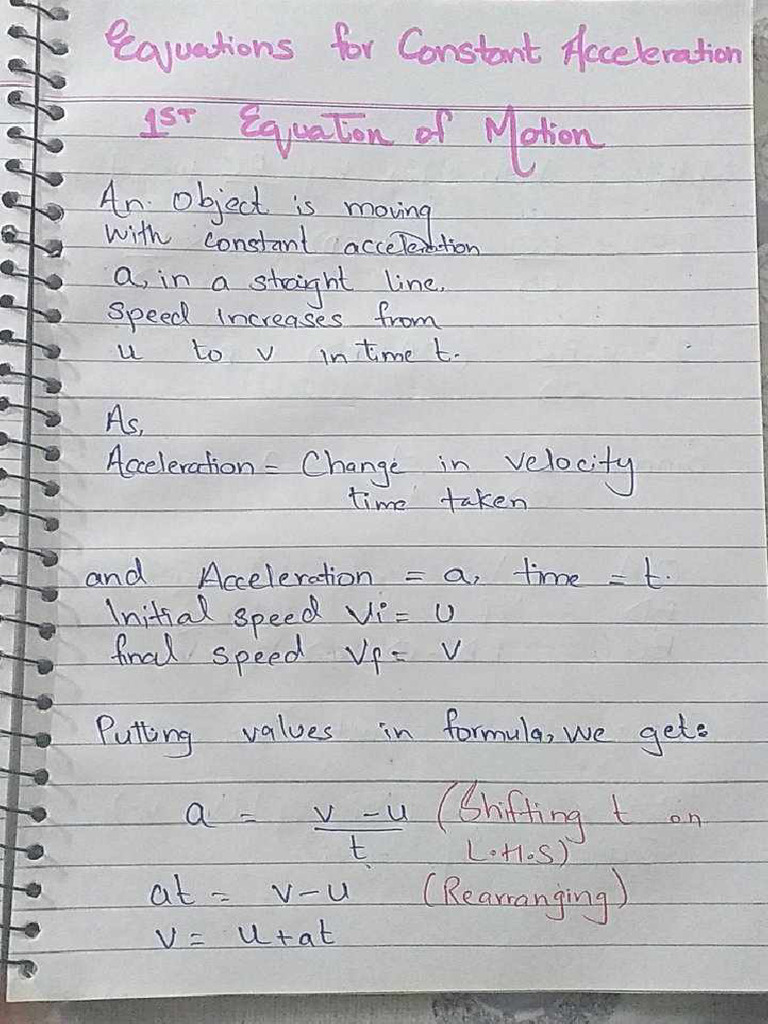 Equations for Constant Acceleration
1ST Equation of Motion
An Object is moving
with constant acceleration
a, in a straight line.
Speed increases from
u to v in time t.
As,
Acceleration = Change in velocity
time taken
and Acceleration = a, time = t.
Initial speed Vi = U
final speed Vf = V
Putting values in formula, we get:
a = v - u (Shifting t on
t L.H.S)
at = v - u (Rearranging)
v = u + at